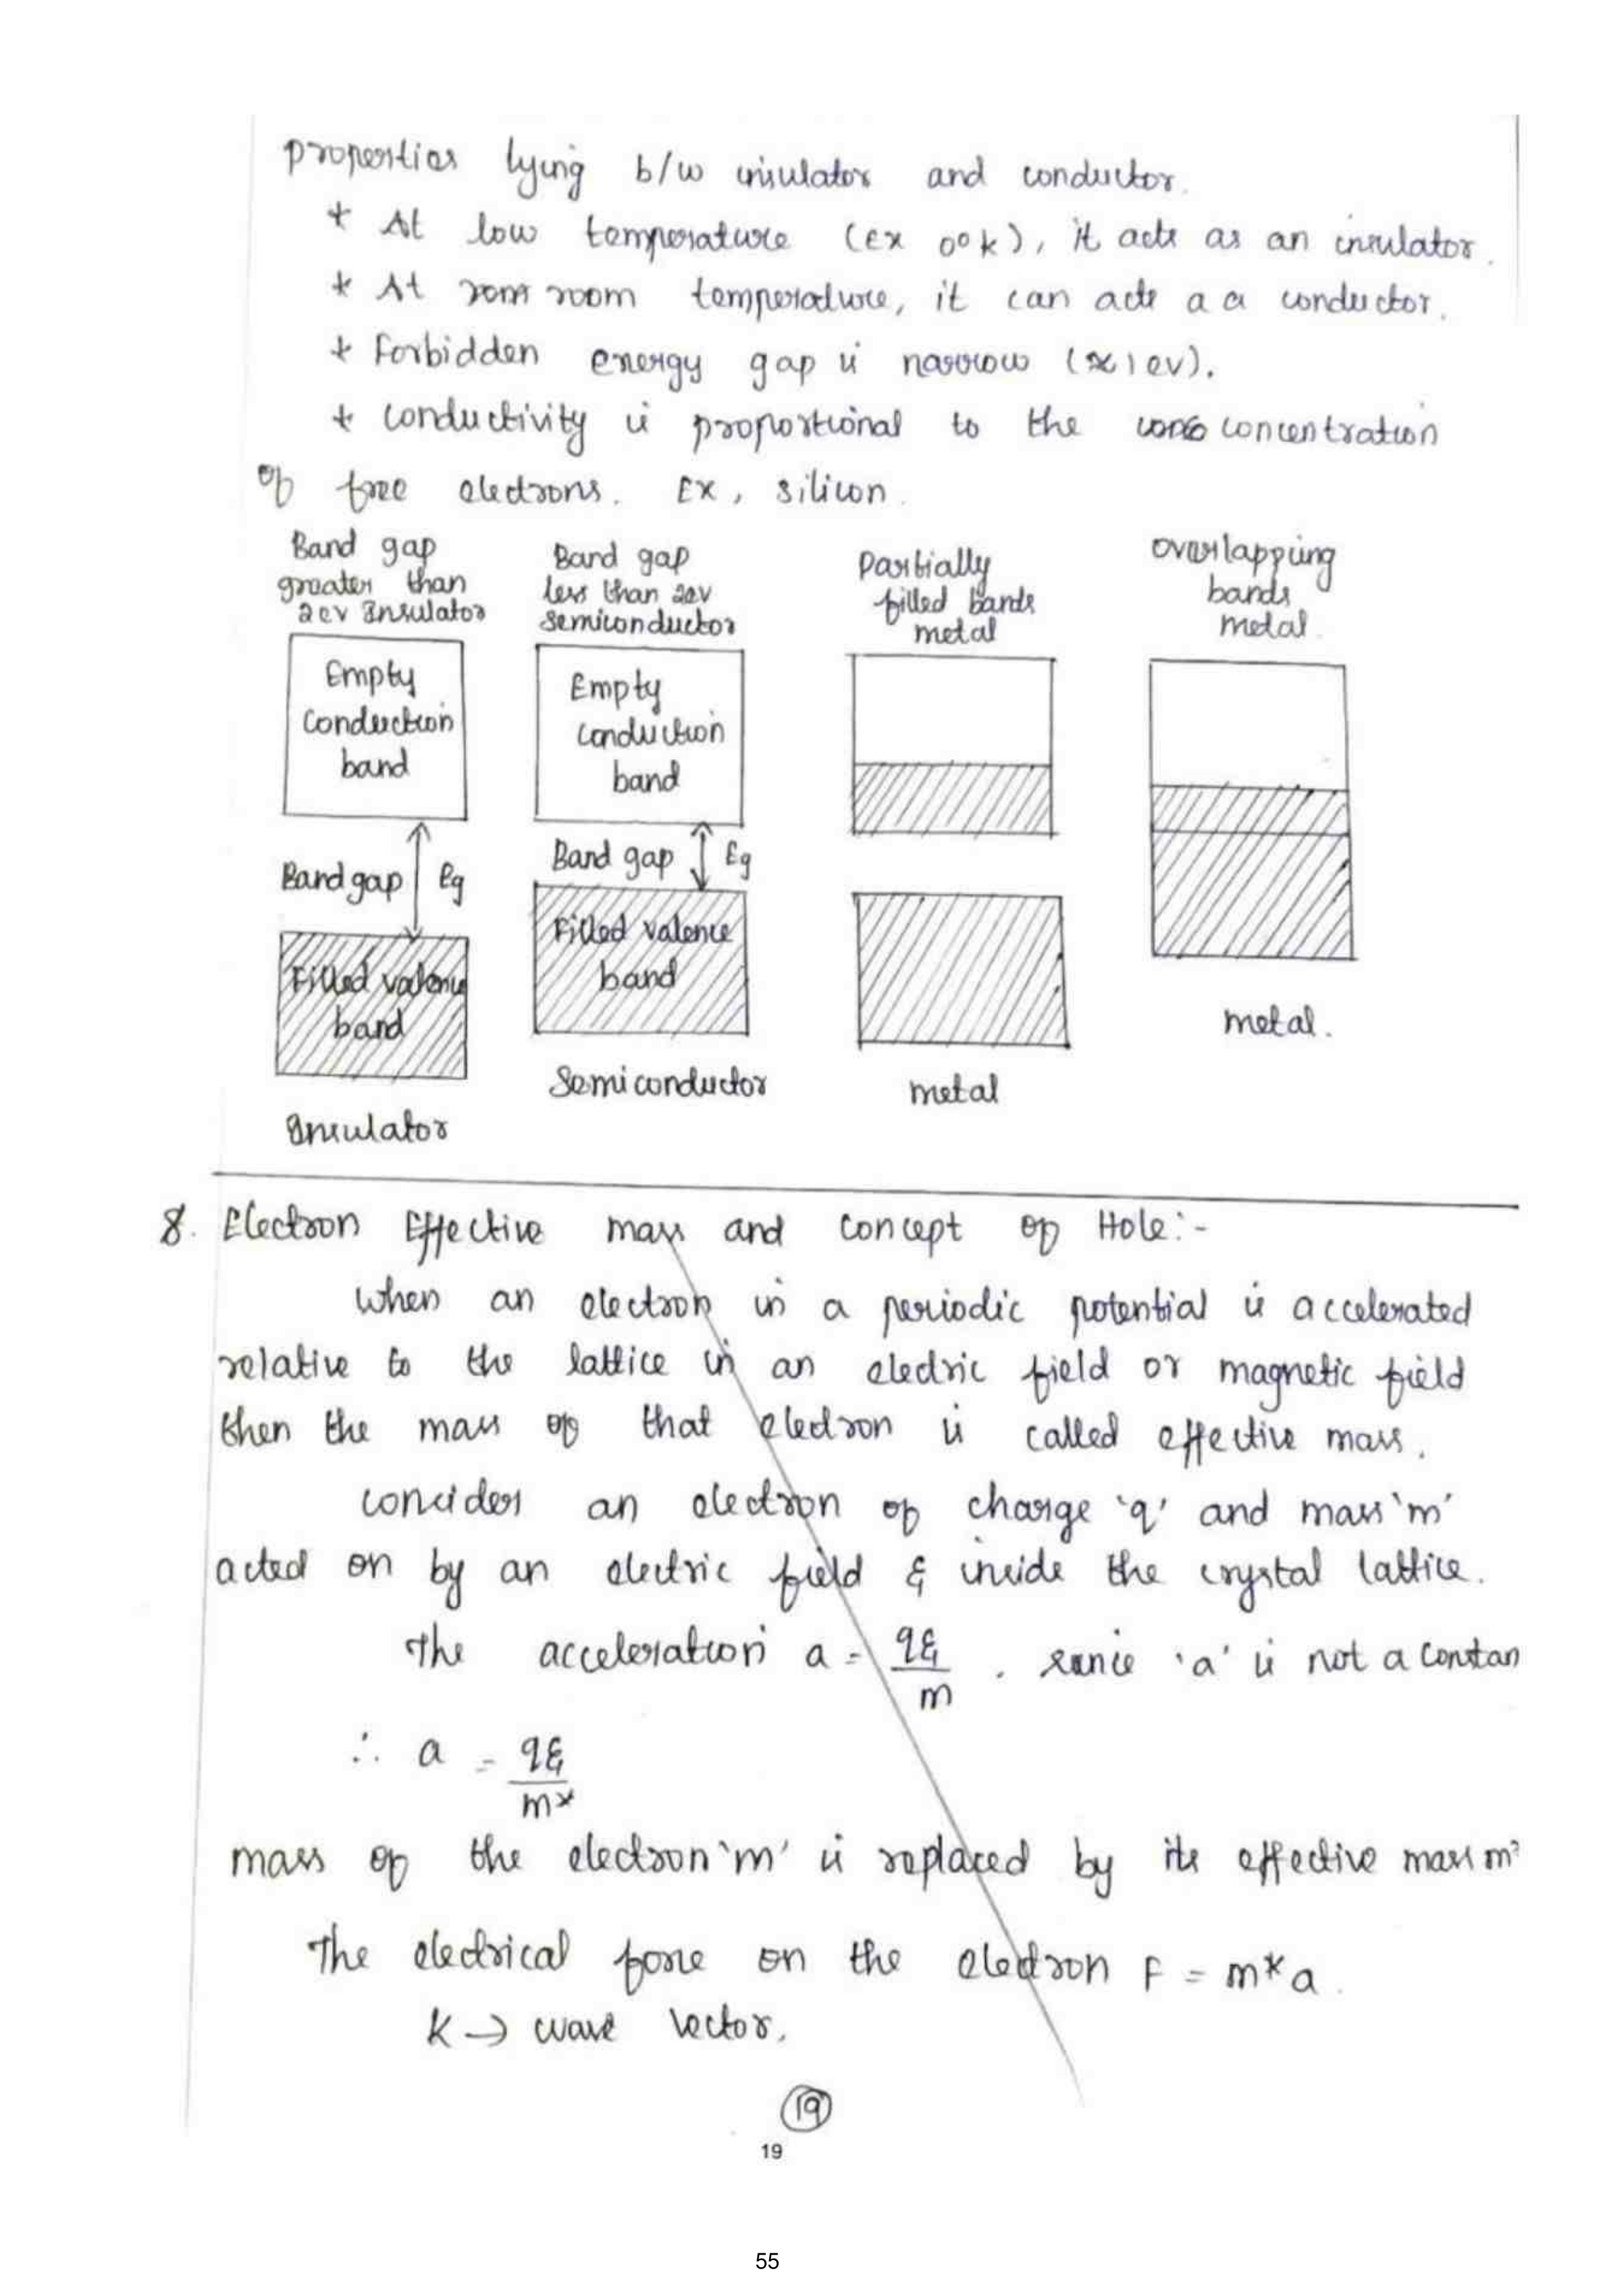 properties lying b/w insulator and conductor.
* At low temperature (Ex 0°K), it acts as an insulator.
* At room temperature, it can acts a a conductor.
* Forbidden energy gap is narrow (≈1ev).
* conductivity is proportional to the concentration
of free electrons. Ex, silicon.
Band gap
greater than
2ev Insulator
Band gap
less than 2ev
semiconductor
Partially
filled bands
metal
overlapping
bands
metal.
Empty
conduction
band
Empty
conduction
band
Band gap Eg
Band gap Eg
Filled valence
band
Filled valence
band
Insulator
Semiconductor
metal
metal.
8. Electron Effective mass and concept of Hole:-
when an electron in a periodic potential is accelerated
relative to the lattice in an electric field or magnetic field
then the mass of that electron is called effective mass.
consider an electron of charge 'q' and mass 'm'
acted on by an electric field ξ inside the crystal lattice.
The acceleration a = qξ/m . since 'a' is not a constan
∴ a = qξ/m*
mass of the electron 'm' is replaced by its effective mass m*
The electrical force on the electron F = m*a.
K → wave vector.
19
19
55